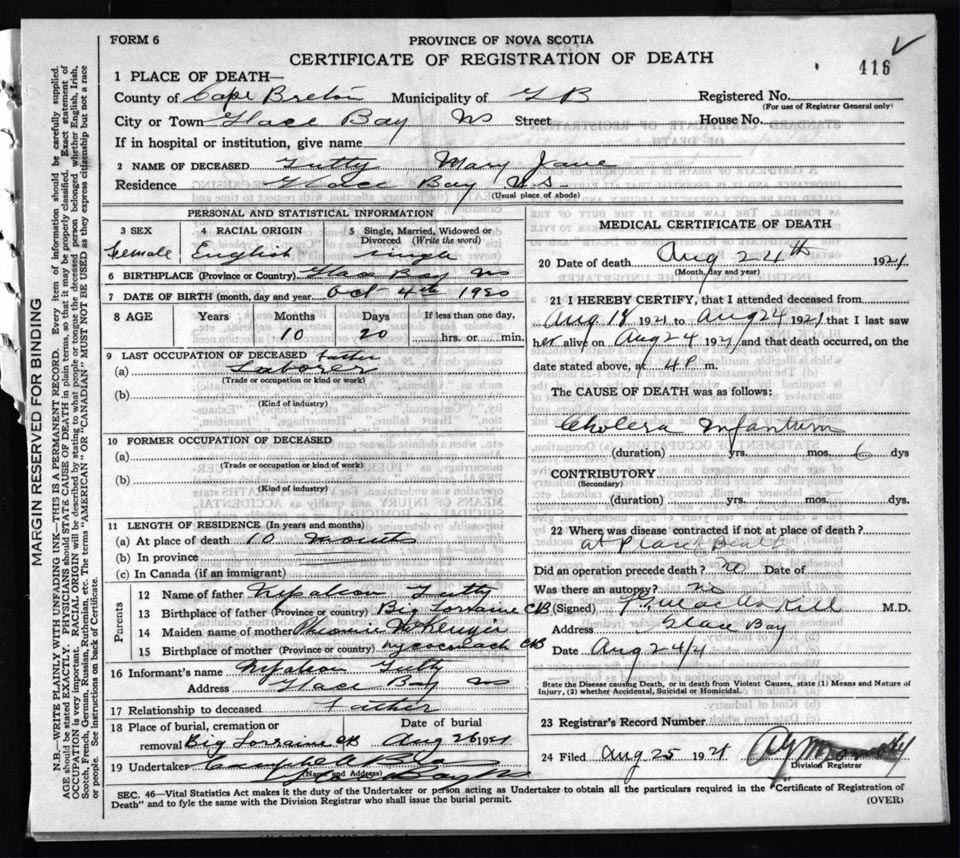 FORM 6
PROVINCE OF NOVA SCOTIA
CERTIFICATE OF REGISTRATION OF DEATH
416
1 PLACE OF DEATH—
County of Cape Breton Municipality of G B Registered No.
(For use of Registrar General only)
City or Town Glace Bay NS Street House No.
If in hospital or institution, give name
2 NAME OF DECEASED Tutty Mary Jane
Residence Glace Bay N.S.
(Usual place of abode)
PERSONAL AND STATISTICAL INFORMATION
3 SEX 4 RACIAL ORIGIN 5 Single, Married, Widowed or Divorced (Write the word)
Female English single
6 BIRTHPLACE (Province or Country) Glace Bay NS
7 DATE OF BIRTH (month, day and year) Oct 4th 1920
8 AGE Years Months Days If less than one day,
10 20 hrs. or min.
9 LAST OCCUPATION OF DECEASED Father
(a) Laborer
(Trade or occupation or kind of work)
(b)
(Kind of industry)
10 FORMER OCCUPATION OF DECEASED
(a)
(Trade or occupation or kind of work)
(b)
(Kind of industry)
11 LENGTH OF RESIDENCE (In years and months)
(a) At place of death 10 months
(b) In province
(c) In Canada (if an immigrant)
Parents
12 Name of father Tutty
13 Birthplace of father (Province or country) Big Lorraine CB
14 Maiden name of mother
15 Birthplace of mother (Province or country) CB
16 Informant's name Tutty
Address Glace Bay NS
17 Relationship to deceased Father
18 Place of burial, cremation or removal Big Lorraine CB Date of burial Aug 26 1921
19 Undertaker
(Name and Address)
MEDICAL CERTIFICATE OF DEATH
20 Date of death Aug 24th 1921.
(Month, day and year)
21 I HEREBY CERTIFY, that I attended deceased from
Aug 18 1921 to Aug 24 1921 that I last saw
her alive on Aug 24 1921 and that death occurred, on the
date stated above, at 4 P. m.
The CAUSE OF DEATH was as follows:
Cholera Infantum
(duration) yrs. mos. 6 dys
CONTRIBUTORY
(Secondary)
(duration) yrs. mos. dys.
22 Where was disease contracted if not at place of death?
at Place Death
Did an operation precede death? No Date of
Was there an autopsy? No
(Signed) M.D.
Address Glace Bay
Date Aug 24/21
State the Disease causing Death, or in death from Violent Causes, state (1) Means and Nature of Injury, (2) whether Accidental, Suicidal or Homicidal.
23 Registrar's Record Number
24 Filed Aug 25 1921
Division Registrar
SEC. 46—Vital Statistics Act makes it the duty of the Undertaker or person acting as Undertaker to obtain all the particulars required in the "Certificate of Registration of
Death" and to fyle the same with the Division Registrar who shall issue the burial permit.
(OVER)
MARGIN RESERVED FOR BINDING
N.B.—WRITE PLAINLY WITH UNFADING INK—THIS IS A PERMANENT RECORD. Every item of information should be carefully supplied.
AGE should be stated EXACTLY. PHYSICIANS should STATE CAUSE OF DEATH in plain terms, so that it may be properly classified. Exact statement of
OCCUPATION is very important. RACIAL ORIGIN will be described by stating to what people or tongue the deceased person belonged whether English, Irish,
Scotch, French, German, Russian, Ruthenian, etc. The terms "AMERICAN" OR "CANADIAN" MUST NOT BE USED as they express citizenship but not a race
or people. See instructions on back of Certificate.